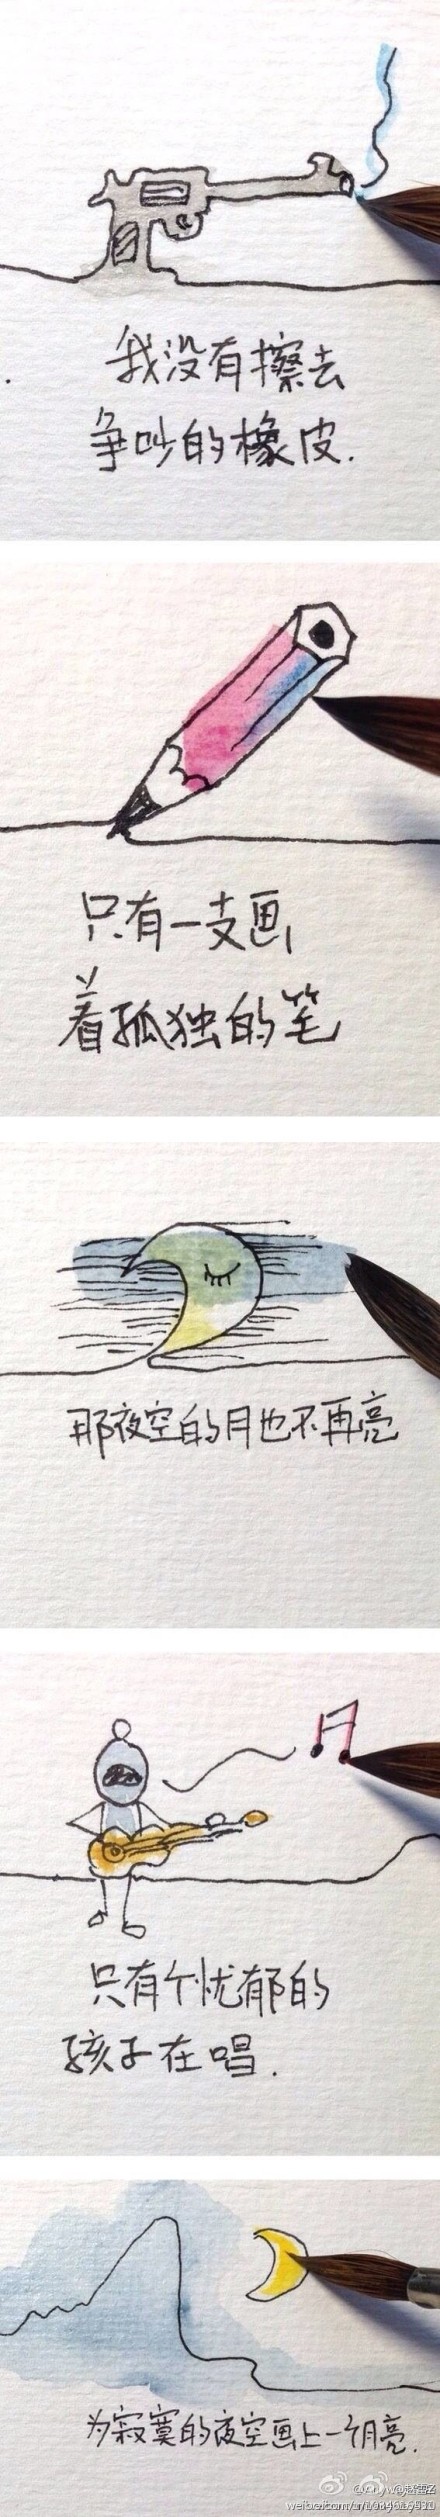 我没有擦去
争吵的橡皮.
只有一支画
着孤独的笔
那夜空的月也不再亮
只有个忧郁的
孩子在唱.
为寂寞的夜空画上一个月亮.